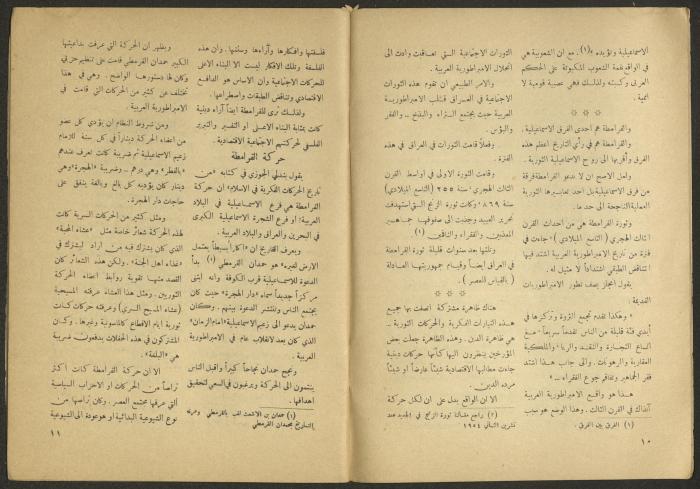 الاسماعيلية وتؤيده »(١). مع ان الشعوبية هي
في الواقع نقمة الشعوب المكبوتة على الحكم
العربي وكسنه ولذلك فهي عصبة قومية لا
اممية .
* * *
والقرامطة هم احدى الفرق الاسماعيلية .
والقرامطة هم في رأي التاريخ اعظم هذه
الفرق وأقربها الى روح الاسماعيلية الثورية .
ولعل الاصح ان لا ندعو القرامطة فرقة
من فرق الاسماعيلية بل احد تعابيرها الثورية
العملية الناجحة الى حد ما .
وثورة القرامطة هي من احداث القرن
الثالث الهجري ( التاسع الميلادي ) جاءت في
فترة من تاريخ الامبراطورية العربية اشتد فيها
التناقض الطبقي اشتداداً لا مثيل له .
يقول انجلز يصف تطور الامبراطوريات
القديمة :
« وهكذا تقدم تجمع الثروة وتركزها في
أيدي فئة قليلة من الناس تقدماً سريعاً - مع
اتساع التجارة والنقد والربا والملكية
العقارية والرهونات . والى جانب هذا اشتد
فقر الجماهير وتفاقم جوع الفقراء ... »
هذا هو واقع الامبراطورية العربية
آنذاك في القرن الثالث . وهذا الوضع هو سبب
(١) الفرق بين الفرق .
١٠
الثورات الاجتماعية التي تعاقدت وأدت الى
انحلال الامبراطورية العربية .
والامر الطبيعي ان تقوم هذه الثورات
الاجتماعية في العراق قلب الامبراطورية
العربية حيث يجتمع الثراء والبذخ .. والفقر
والبؤس .
وفعلاً قامت الثورات في العراق في هذه
الفترة .
وقامت الثورة الاولى في اواسط القرن
الثالث الهجري ( سنة ٢٥٥ ( التاسع الميلادي )
سنة ٨٦٩ ) وكانت ثورة الزنج التي استهدفت
تحرير العبيد وجذبت الى صفوفها جماهير
المعذبين والفقراء والناقمين (٢)
وتلتها بعد سنوات قليلة ثورة القرامطة
في العراق ايضاً وقيام جمهوريتها العادلة
( بالقياس للعصر ) .
* * *
هناك ظاهرة مشتركة اتصفت بها جميع
هذه التيارات الفكرية والحركات الثورية ..
هي ظاهرة الدين . وهذه الظاهرة جعلت بعض
المؤرخين ينظرون اليها كأنها حركات دينية
جاءت مطالبها الاقتصادية شيئاً عارضاً او شيئاً
مرده الدين .
الا ان الواقع يدل على ان لكل حركة
(٢) راجع مقالنا ثورة الزنج في الجديد عدد
تشرين الثاني ١٩٥٤
فلسفتها وافكارها وآراءها وسننها . وان هذه
الفلسفة وتلك الافكار ليست الا البناء الاعلى
للحركات الاجتماعية وان الاساس هو الدافع
الاقتصادي وتناقض الطبقات واصطراعها .
ولذلك نرى للقرامطة ايضاً آراء دينية
كانت بمثابة البناء الاعلى او التفسير والتبرير
الفلسفي لحركتهم الاجتماعية الاقتصادية .
حركة القرامطة
يقول بندلي الجوزي في كتابه « من
تاريخ الحركات الفكرية في الاسلام » ان حركة
القرامطة هي فرع الاسماعيلية في البلاد
العربية ؛ او فرع الشجرة الاسماعيلية الكبرى
في البحرين والعراق والبلاد العربية .
ويعرف التاريخ ان « اكاراً بسيطاً يعتمل
الارض لغيره » هو حمدان القرمطي (١) بدأ
الدعوة للاسماعيلية قرب الكوفة وانه ابتنى
مركزاً جديداً سماه « دار الهجرة » حيث كان
يجتمع الناس وتنتشر الدعوة بينهم . وكان
حمدان يدعو الى زعيم الاسماعيلية « امام الزمان »
الذي كان يعد لانقلاب عام في الامبراطورية
العربية .
ونجح حمدان نجاحاً كبيراً واقبل الناس
ينتمون الى الحركة ويرغبون في السعي لتحقيق
اهدافها .
(١) حمدان بن الاشعث لقب بالقرمطي وعرفه
التاريخ بحمدان القرمطي
ويظهر ان الحركة التي عرفت بداعيتها
الكبير حمدان القرمطي قامت على تنظيم حزبي
وكان لها دستورها الواضح . وهي في هذا
تختلف عن كثير من الحركات التي قامت في
الامبراطورية العربية .
ومن شروط النظام ان يؤدي كل عضو
من اعضاء الحركة ديناراً في كل سنة للامام
زعيم الاسماعيلية ثم ضريبة كانت تعرف عندهم
« بالفطر » وهي درهم .. وضريبة « الهجرة » وهي
دينار كان يؤديه كل بالغ وبالغة ينفق على
حاجات دار الهجرة .
ومثل كثير من الحركات السرية كانت
لهذه الحركة شعائر خاصة مثل « عشاء المحبة »
الذي كان يشترك فيه من اراد ليشترك في
« غذاء اهل الجنة » . ولكن هذه الشعائر كان
القصد منها تقوية روابط اعضاء الحركة
الثوريين . ومثل هذا العشاء عرفته المسيحية
( عشاء المسيح السري ) وعرفته حركات كانت
ثورية ايام الاقطاع كالماسونية وغيرها . وكان
المشتركون في هذه الحفلات يدفعون ضريبة
هي « البلغة » .
الا ان حركة القرامطة كانت اكثر
تراصاً من الحركات او الاحزاب السياسية
التي عرفها مجتمع العصر . وكان تراصها من
نوع الشيوعية البدائية او هو عودة الى الشيوعية
١١